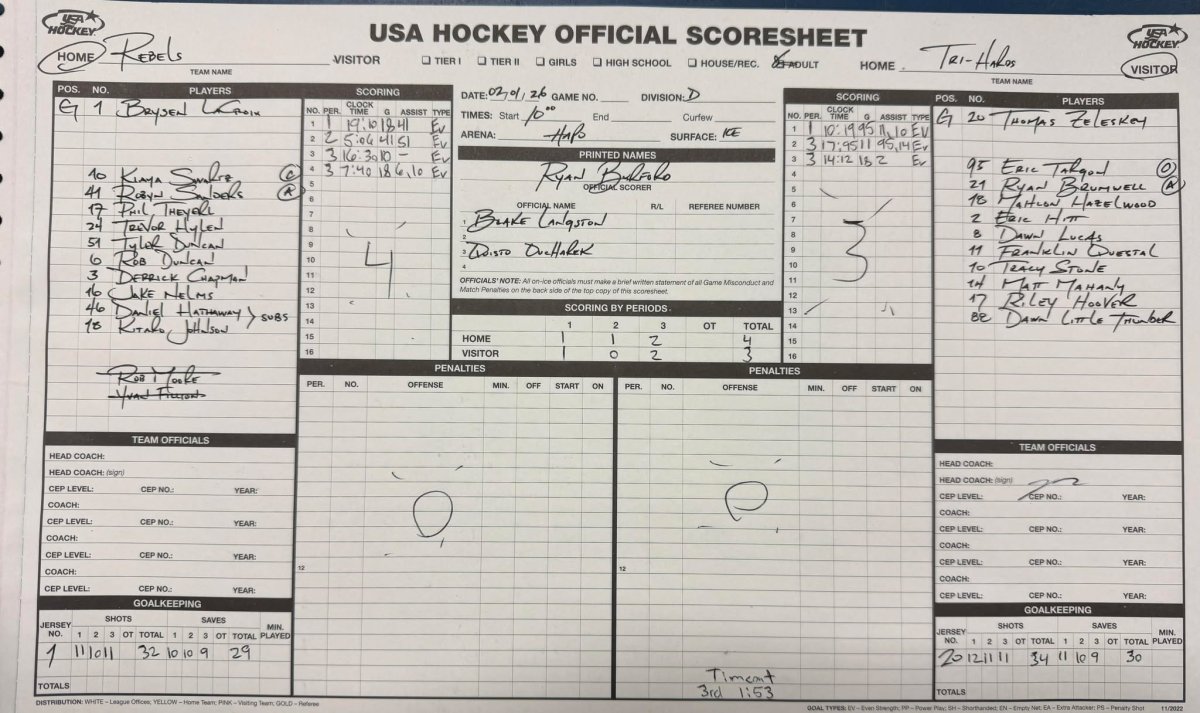 USA HOCKEY
USA HOCKEY OFFICIAL SCORESHEET
USA HOCKEY
HOME Rebels VISITOR
TEAM NAME
☐ TIER I ☐ TIER II ☐ GIRLS ☐ HIGH SCHOOL ☐ HOUSE/REC. ADULT
HOME Tri-Hards VISITOR
TEAM NAME
POS. NO. PLAYERS
G 1 Brysen
10 Kiaya Swartz C
41 Robyn Sanders A
17 Phil Theyerl
24 Trevor Hylen
51 Tyler Duncan
6 Rob Duncan
3 Derrick Chapman
16 Jake Nelms
46 Daniel Hathaway > SUBS
18 Kitaro Johnson
Rob Moore
Yvan Fillion
SCORING
NO. PER. CLOCK TIME G ASSIST TYPE
1 1 19:10 18 41 Ev
2 2 5:06 41 51 Ev
3 3 16:30 10 - Ev
4 3 7:40 18 6,10 Ev
5
6
7
8
9
10
11
12
13
14
15
16
4
DATE: 02,01,26 GAME NO. DIVISION: D
TIMES: Start 10:00 End Curfew
ARENA: HAPO SURFACE: ICE
PRINTED NAMES
Ryan Burford
OFFICIAL SCORER
OFFICIAL NAME R/L REFEREE NUMBER
1 Blake Langston
2
3 Ducharek
4
OFFICIALS' NOTE: All on-ice officials must make a brief written statement of all Game Misconduct and
Match Penalties on the back side of the top copy of this scoresheet.
SCORING BY PERIODS
1 2 3 OT TOTAL
HOME 1 1 2 4
VISITOR 1 0 2 3
SCORING
NO. PER. CLOCK TIME G ASSIST TYPE
1 1 10:19 95 11,10 EV
2 3 17:95 11 95,14 Ev
3 3 14:12 18 2 Ev
4
5
6
7
8
9
10
11
12
13
14
15
16
3
POS. NO. PLAYERS
G 20 Thomas Zeleskey
95 Eric Targon
21 Ryan Brumwell A
18 Mahlon Hazelwood
2 Eric Hitt
8 Dawn Lucas
11 Franklin Questal
10 Tracy Stone
14 Matt Mahany
17 Riley Hoover
82 Dawn Little Thunder
PENALTIES
PER. NO. OFFENSE MIN. OFF START ON
0
12
PENALTIES
PER. NO. OFFENSE MIN. OFF START ON
12
Timeout
3rd 1:53
TEAM OFFICIALS
HEAD COACH:
HEAD COACH: (sign)
CEP LEVEL: CEP NO.: YEAR:
COACH:
CEP LEVEL: CEP NO.: YEAR:
COACH:
CEP LEVEL: CEP NO.: YEAR:
COACH:
CEP LEVEL: CEP NO.: YEAR:
GOALKEEPING
JERSEY NO. SHOTS SAVES MIN. PLAYED
1 2 3 OT TOTAL 1 2 3 OT TOTAL
1 11 10 11 32 10 10 9 29
TOTALS
TEAM OFFICIALS
HEAD COACH:
HEAD COACH: (sign)
CEP LEVEL: CEP NO.: YEAR:
COACH:
CEP LEVEL: CEP NO.: YEAR:
COACH:
CEP LEVEL: CEP NO.: YEAR:
COACH:
CEP LEVEL: CEP NO.: YEAR:
GOALKEEPING
JERSEY NO. SHOTS SAVES MIN. PLAYED
1 2 3 OT TOTAL 1 2 3 OT TOTAL
20 12 11 11 34 11 10 9 30
TOTALS
DISTRIBUTION: WHITE – League Offices; YELLOW – Home Team; PINK – Visiting Team; GOLD – Referee
GOAL TYPES: EV – Even Strength; PP – Power Play; SH – Shorthanded; EN – Empty Net; EA – Extra Attacker; PS – Penalty Shot 11/2022